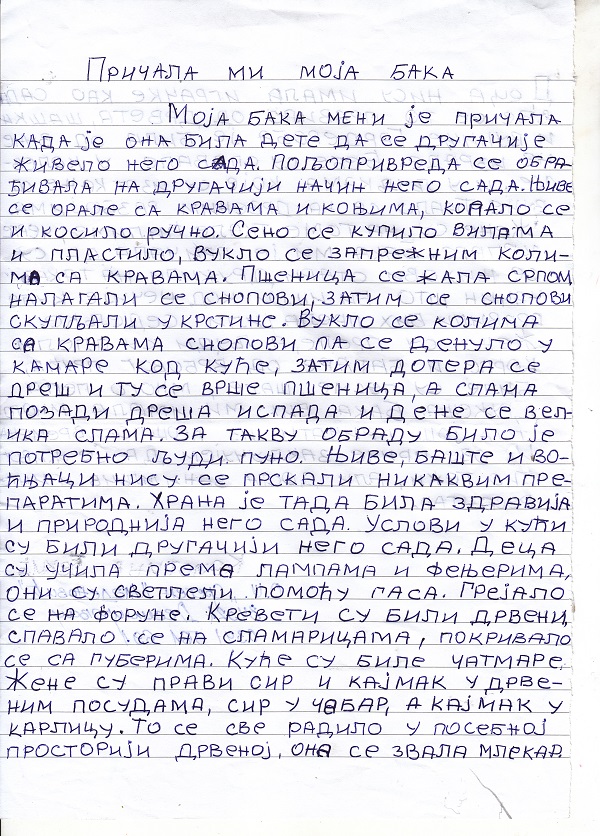 Причала ми моја бака
Моја бака мени је причала
када је она била дете да се другачије
живело него сада. Пољопривреда се обра
ђивала на другачији начин него сада. Њиве
се орале са кравама и коњима, копало се
и косило ручно. Сено се купило вилама
и пластило, вукло се запрежним коли-
ма са кравама. Пшеница се жала српом,
налагали се снопови, затим се снопови
скупљали у крстине. Вукло се колима
са кравама снопови па се денуло у
камаре код куће, затим дотера се
дреш и ту се врше пшеница, а слама
позади дреша испада и дене се вел-
ика слама. За такву обраду било је
потребно људи пуно. Њиве, баште и во-
ћњаци нису се прскали никаквим пре-
паратима. Храна је тада била здравија
и природнија него сада. Услови у кући
су били другачији него сада. Деца
су учила према лампама и фењерима,
они су светлели помоћу гаса. Грејало
се на форуне. Кревети су били дрвени,
спавало се на сламарицама, покривало
се са губерима. Куће су биле чатмаре.
Жене су прави сир и кајмак у дрве-
ним посудама, сир у чабар, а кајмак у
карлицу. То се све радило у посебној
просторији дрвеној, она се звала млекар.